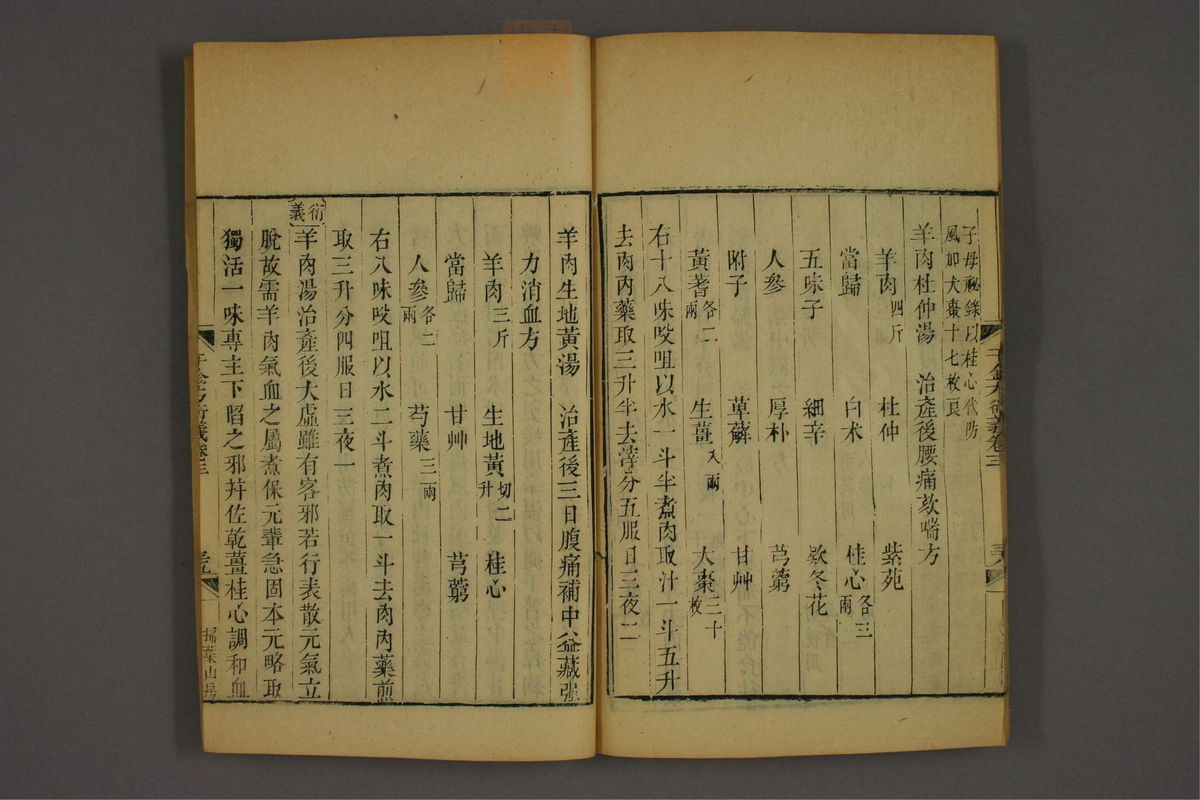 子母秘錄以桂心代防
風加大棗十七枚良
羊肉杜仲湯 治產後腰痛欬喘方
羊肉四斤 杜仲 紫苑
當歸 白朮 桂心各三兩
五味子 細辛 欵冬花
人參 厚朴 芎藭
附子 萆薢 甘艸
黃蓍各二兩 生薑八兩 大棗三十枚
右十八味㕮咀以水一斗半煮肉取汁一斗五升
去肉內藥取三升半去滓分五服日三夜二
千金方衍義卷三
羊肉生地黃湯 治產後三日腹痛補中益藏強
力消血方
羊肉三斤 生地黃切二升 桂心
當歸 甘艸 芎藭
人參各二兩 芍藥三兩
右八味㕮咀以水二斗煮肉取一斗去肉內藥煎
取三升分四服日三夜一
衍義
羊肉湯治產後大虛雖有客邪若行表散元氣立
脫故需羊肉氣血之屬煮保元輩急固本元略取
獨活一味專主下陷之邪幷佐乾薑桂心調和血
千金方衍義卷三
掃葉山房